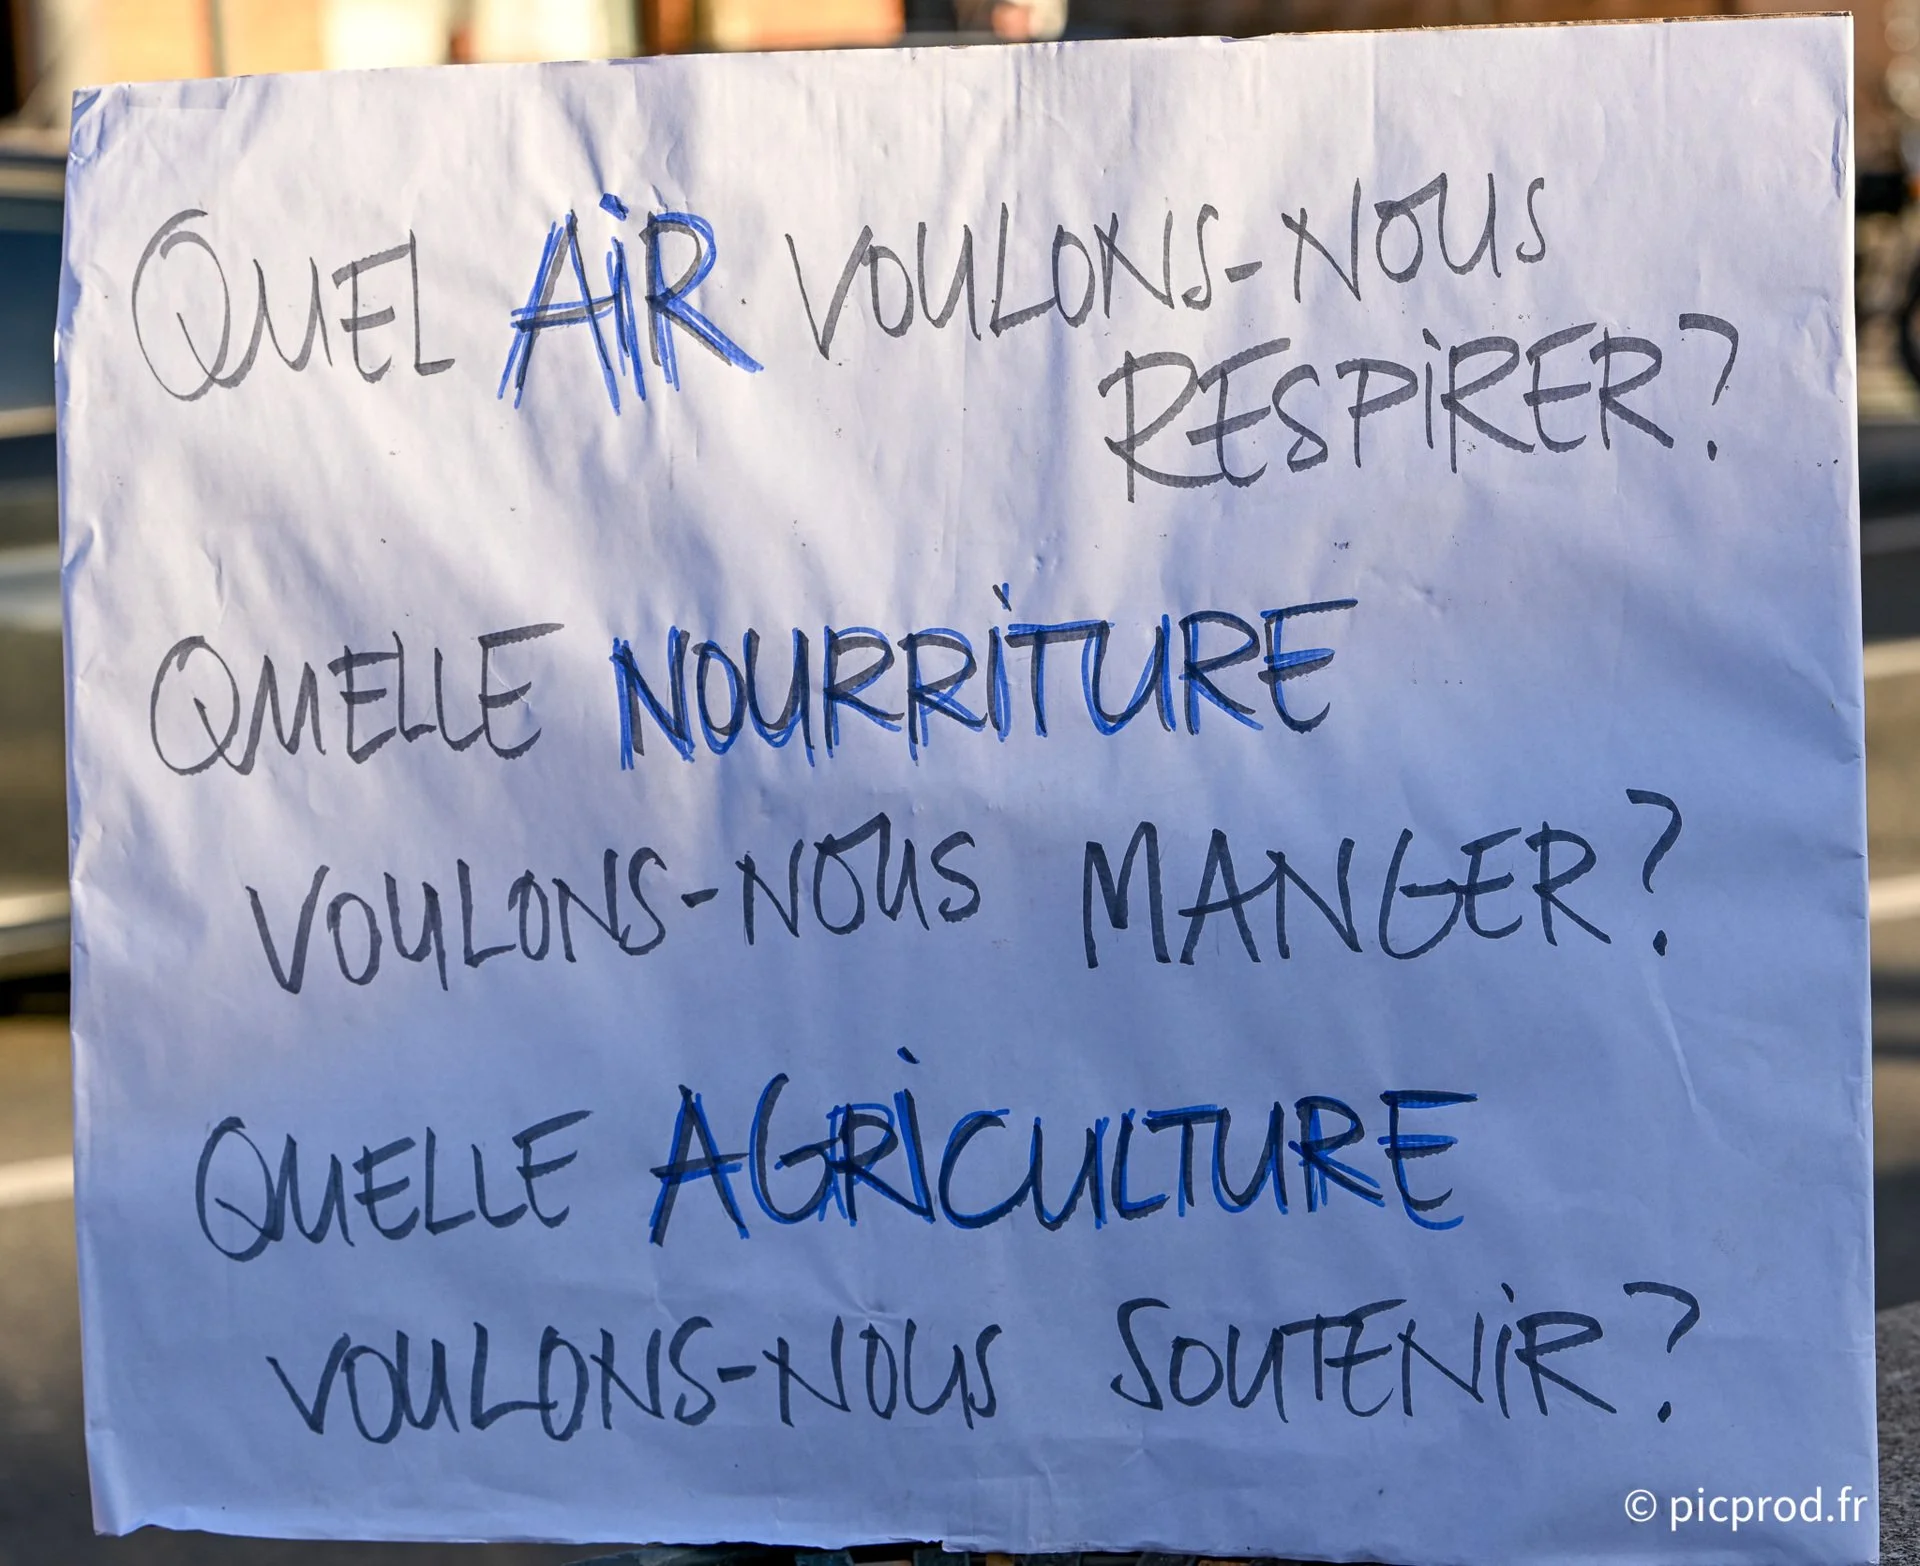 QUEL AiR VOULONS-NOUS
RESPiRER?
QUELLE NOURRiTURE
VOULONS-NOUS MANGER?
QUELLE AGRiCULTURE
VOULONS-NOUS SOUTENiR?
© picprod.fr